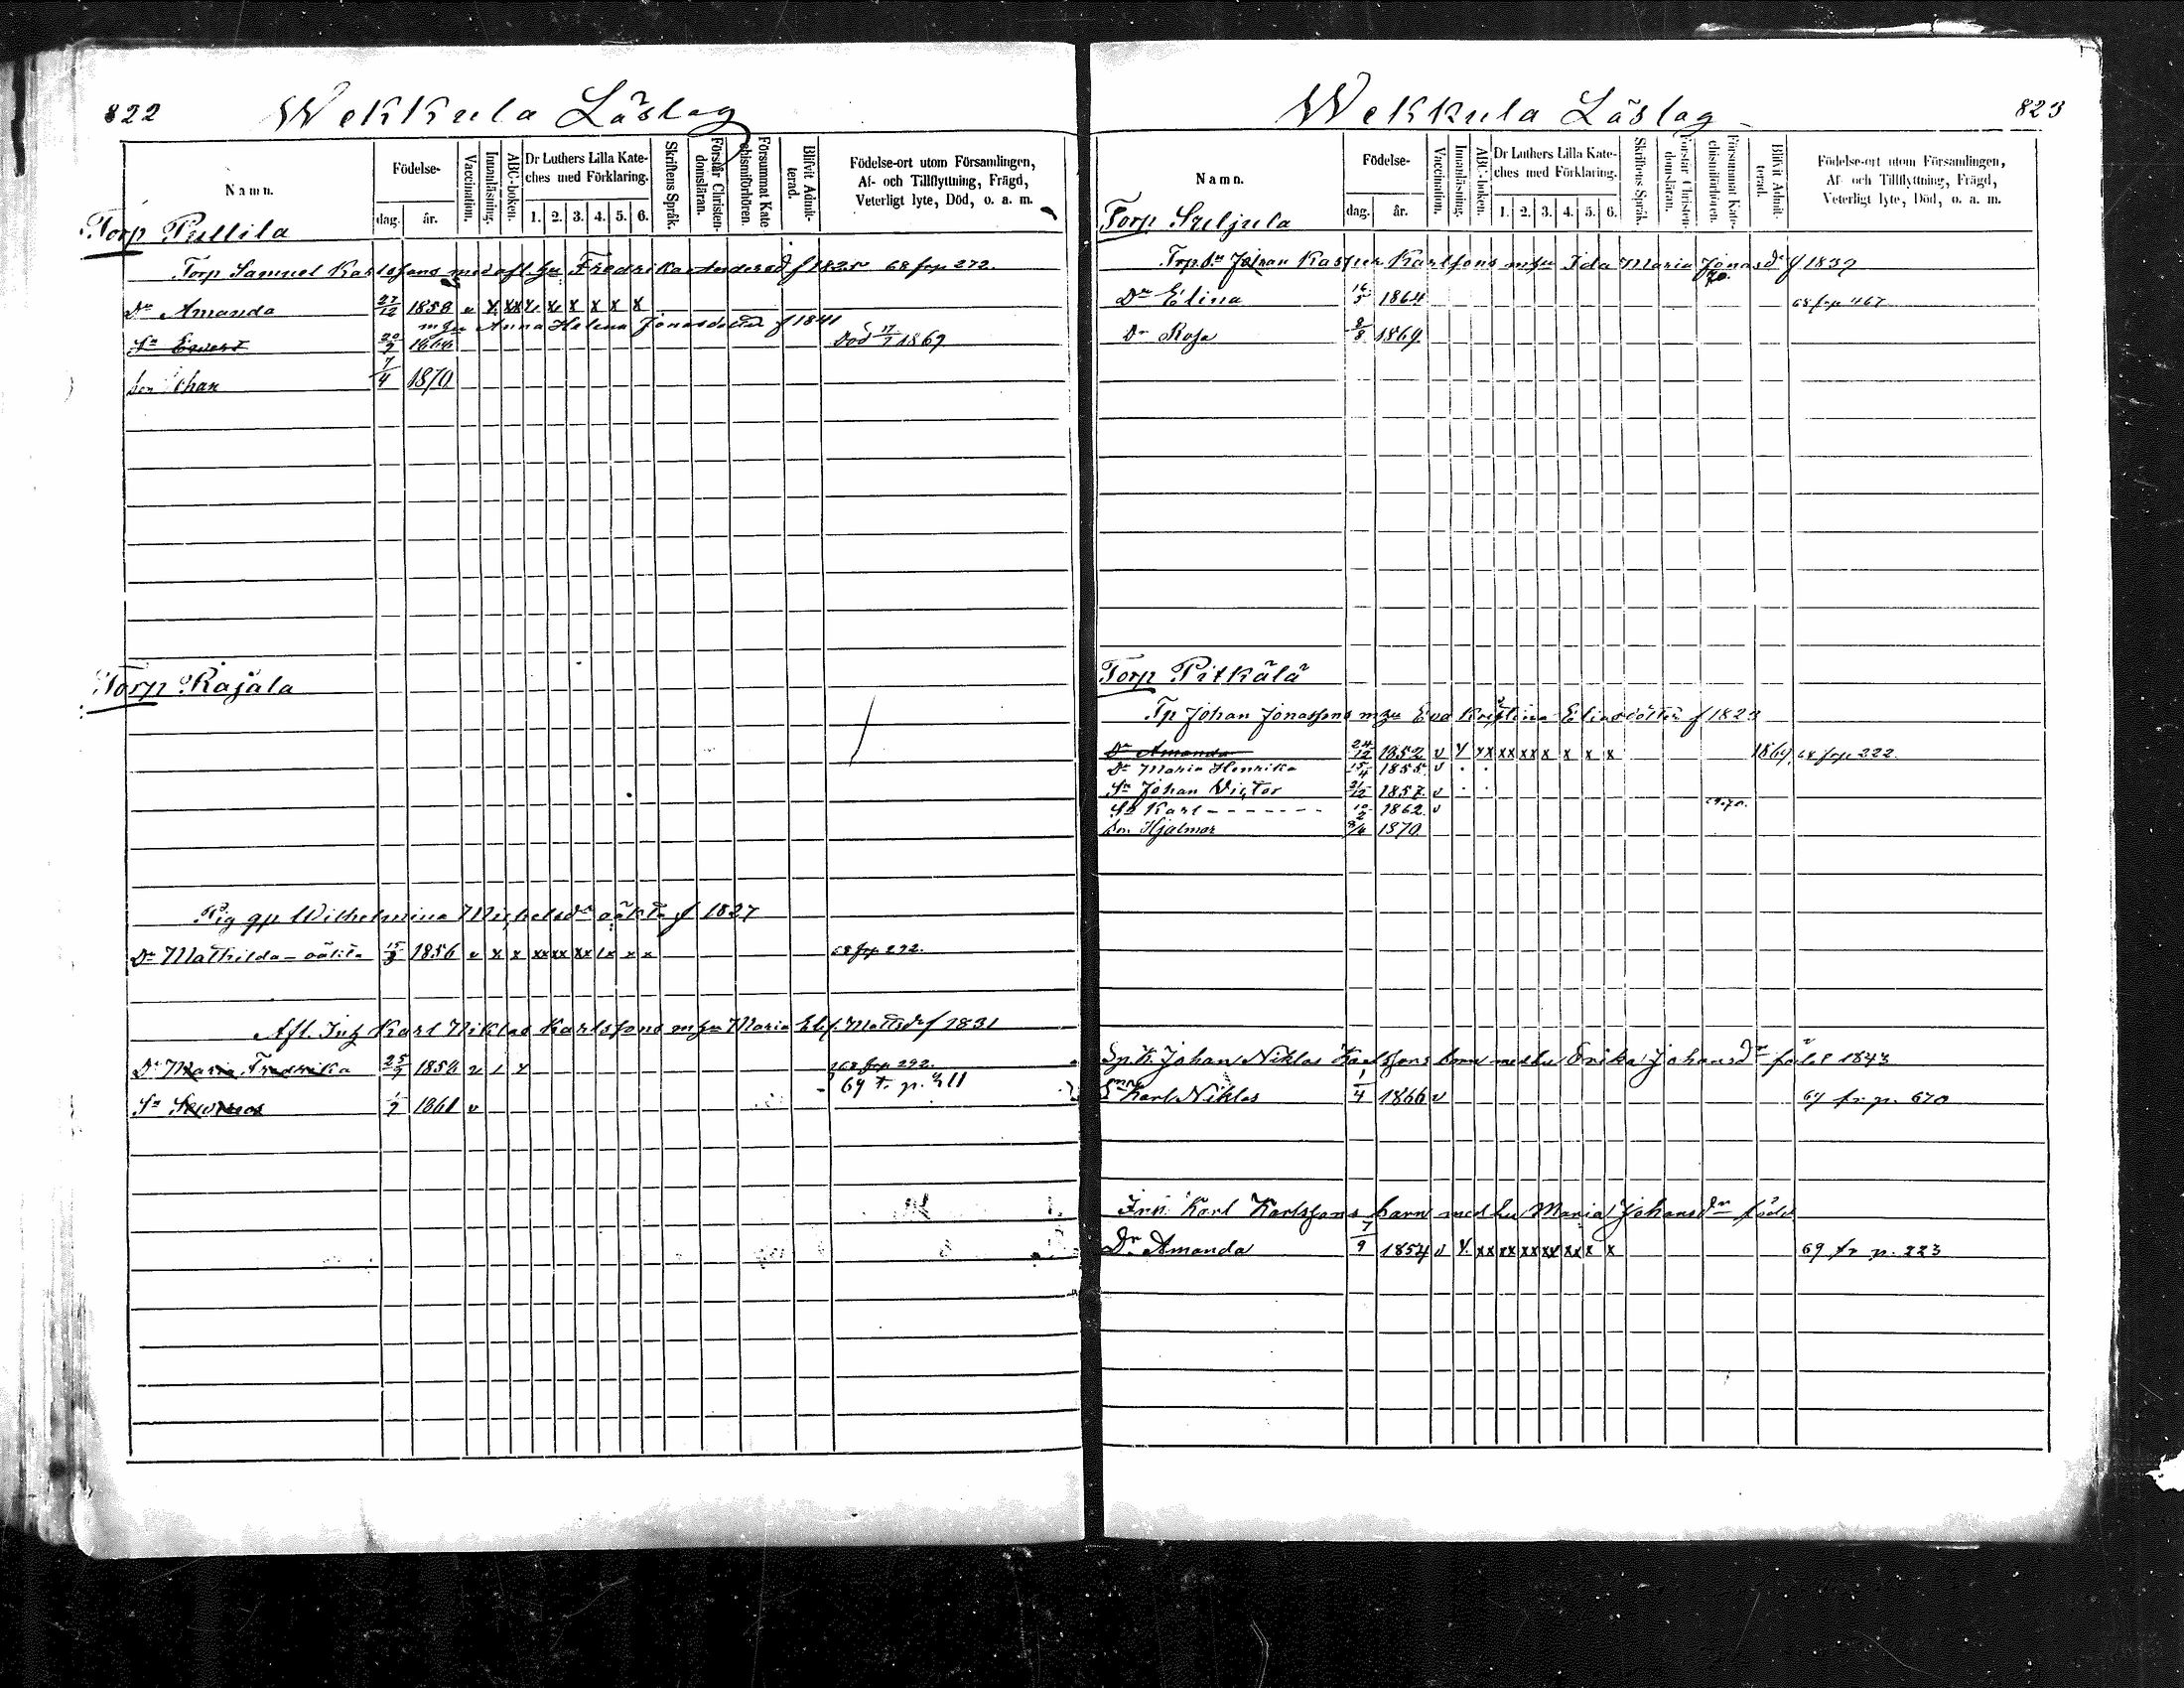 822 Wekkula Läslag
Namn. Födelse- dag. år. Vaccination. Innanläsning. ABC-boken. Dr Luthers Lilla Kateches med Förklaring. 1. 2. 3. 4. 5. 6. Skriftens Språk. Förstår Christendomsläran. Försummat Katechismiförhören. Blifvit Admitterad. Födelse-ort utom Församlingen, Af- och Tillflyttning, Frägd, Veterligt lyte, Död, o. a. m.
Torp Pullila
Torp Samuel Karlssons med afl. hu Fredrika Andersd f 1825 68 frp 272.
Dr Amanda 27/12 1858 v x xx x x x x x x
mhu Anna Helena Jonasdotter f 1841
Sn Evert 20/7 1866 Död 17/7 1869
Son Johan 7/4 1870
Torp Rajala
Pig gp Wilhelmina Michelsdr oäkta f 1827
Dr Mathilda - oäkta 15/3 1856 v x x xx xx xx x x x 68 frp 292.
Afl. Inh Karl Niklas Karlssons mhu Maria Elis. Mattsdr f 1831
Dr Maria Fredrika 25/7 1858 v 68 frp 292.
69 t. p. 211
Sn 1861 v
Wekkula Läslag 823
Namn. Födelse- dag. år. Vaccination. Innanläsning. ABC-boken. Dr Luthers Lilla Kateches med Förklaring. 1. 2. 3. 4. 5. 6. Skriftens Språk. Förstår Christendomsläran. Försummat Katechismiförhören. Blifvit Admitterad. Födelse-ort utom Församlingen, Af- och Tillflyttning, Frägd, Veterligt lyte, Död, o. a. m.
Torp Seljula
Torp.sn Johan Kasper Karlssons mhu Ida Maria Jonasdr f 1839
Dr Elina 16/5 1864 68 frp 467
Dr Rosa 8/8 1869
Torp Pitkälä
Tp Johan Jonassons mhu Eva Kristina Eliasdotter f 1823
Dr Amanda 24/12 1852 v x xx xx xx x x x x 1869 68 frp 222.
Dr Maria Henrika 15/4 1855 v
Sn Johan Victor 21/12 1857 v
Sn Karl - - - - - - - 10/2 1862 v
Son Hjalmar 1870
Johan Niklas Karlssons barn med hu Erika Johansdr född 1843
Karl Niklas 1/4 1866 v 69 fr p. 670
Karl Karlssons barn med hu Maria Johansdr född
Dr Amanda 7/9 1854 v x xx xx xx xx xx x x 69 fr p. 223